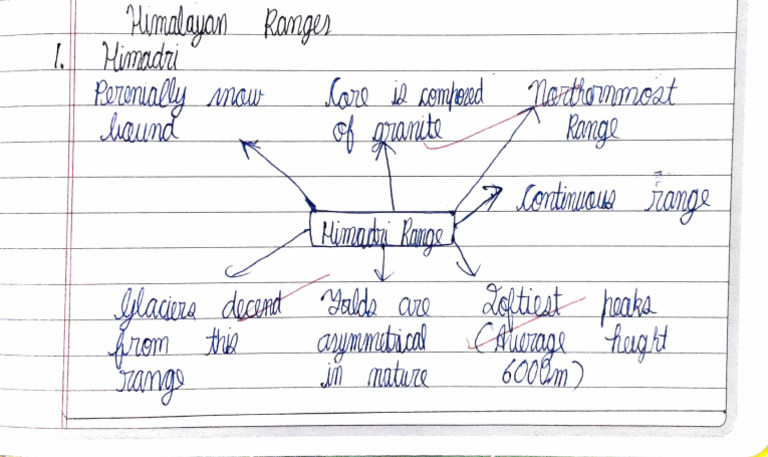 Himalayan Ranges
1. Himadri
Perenially snow
bound
Core is composed
of granite
Northernmost
Range
Continuous range
Himadri Range
Glaciers decend
from this
range
Folds are
asymmetrical
in nature
Loftiest peaks
(Average height
6000m)